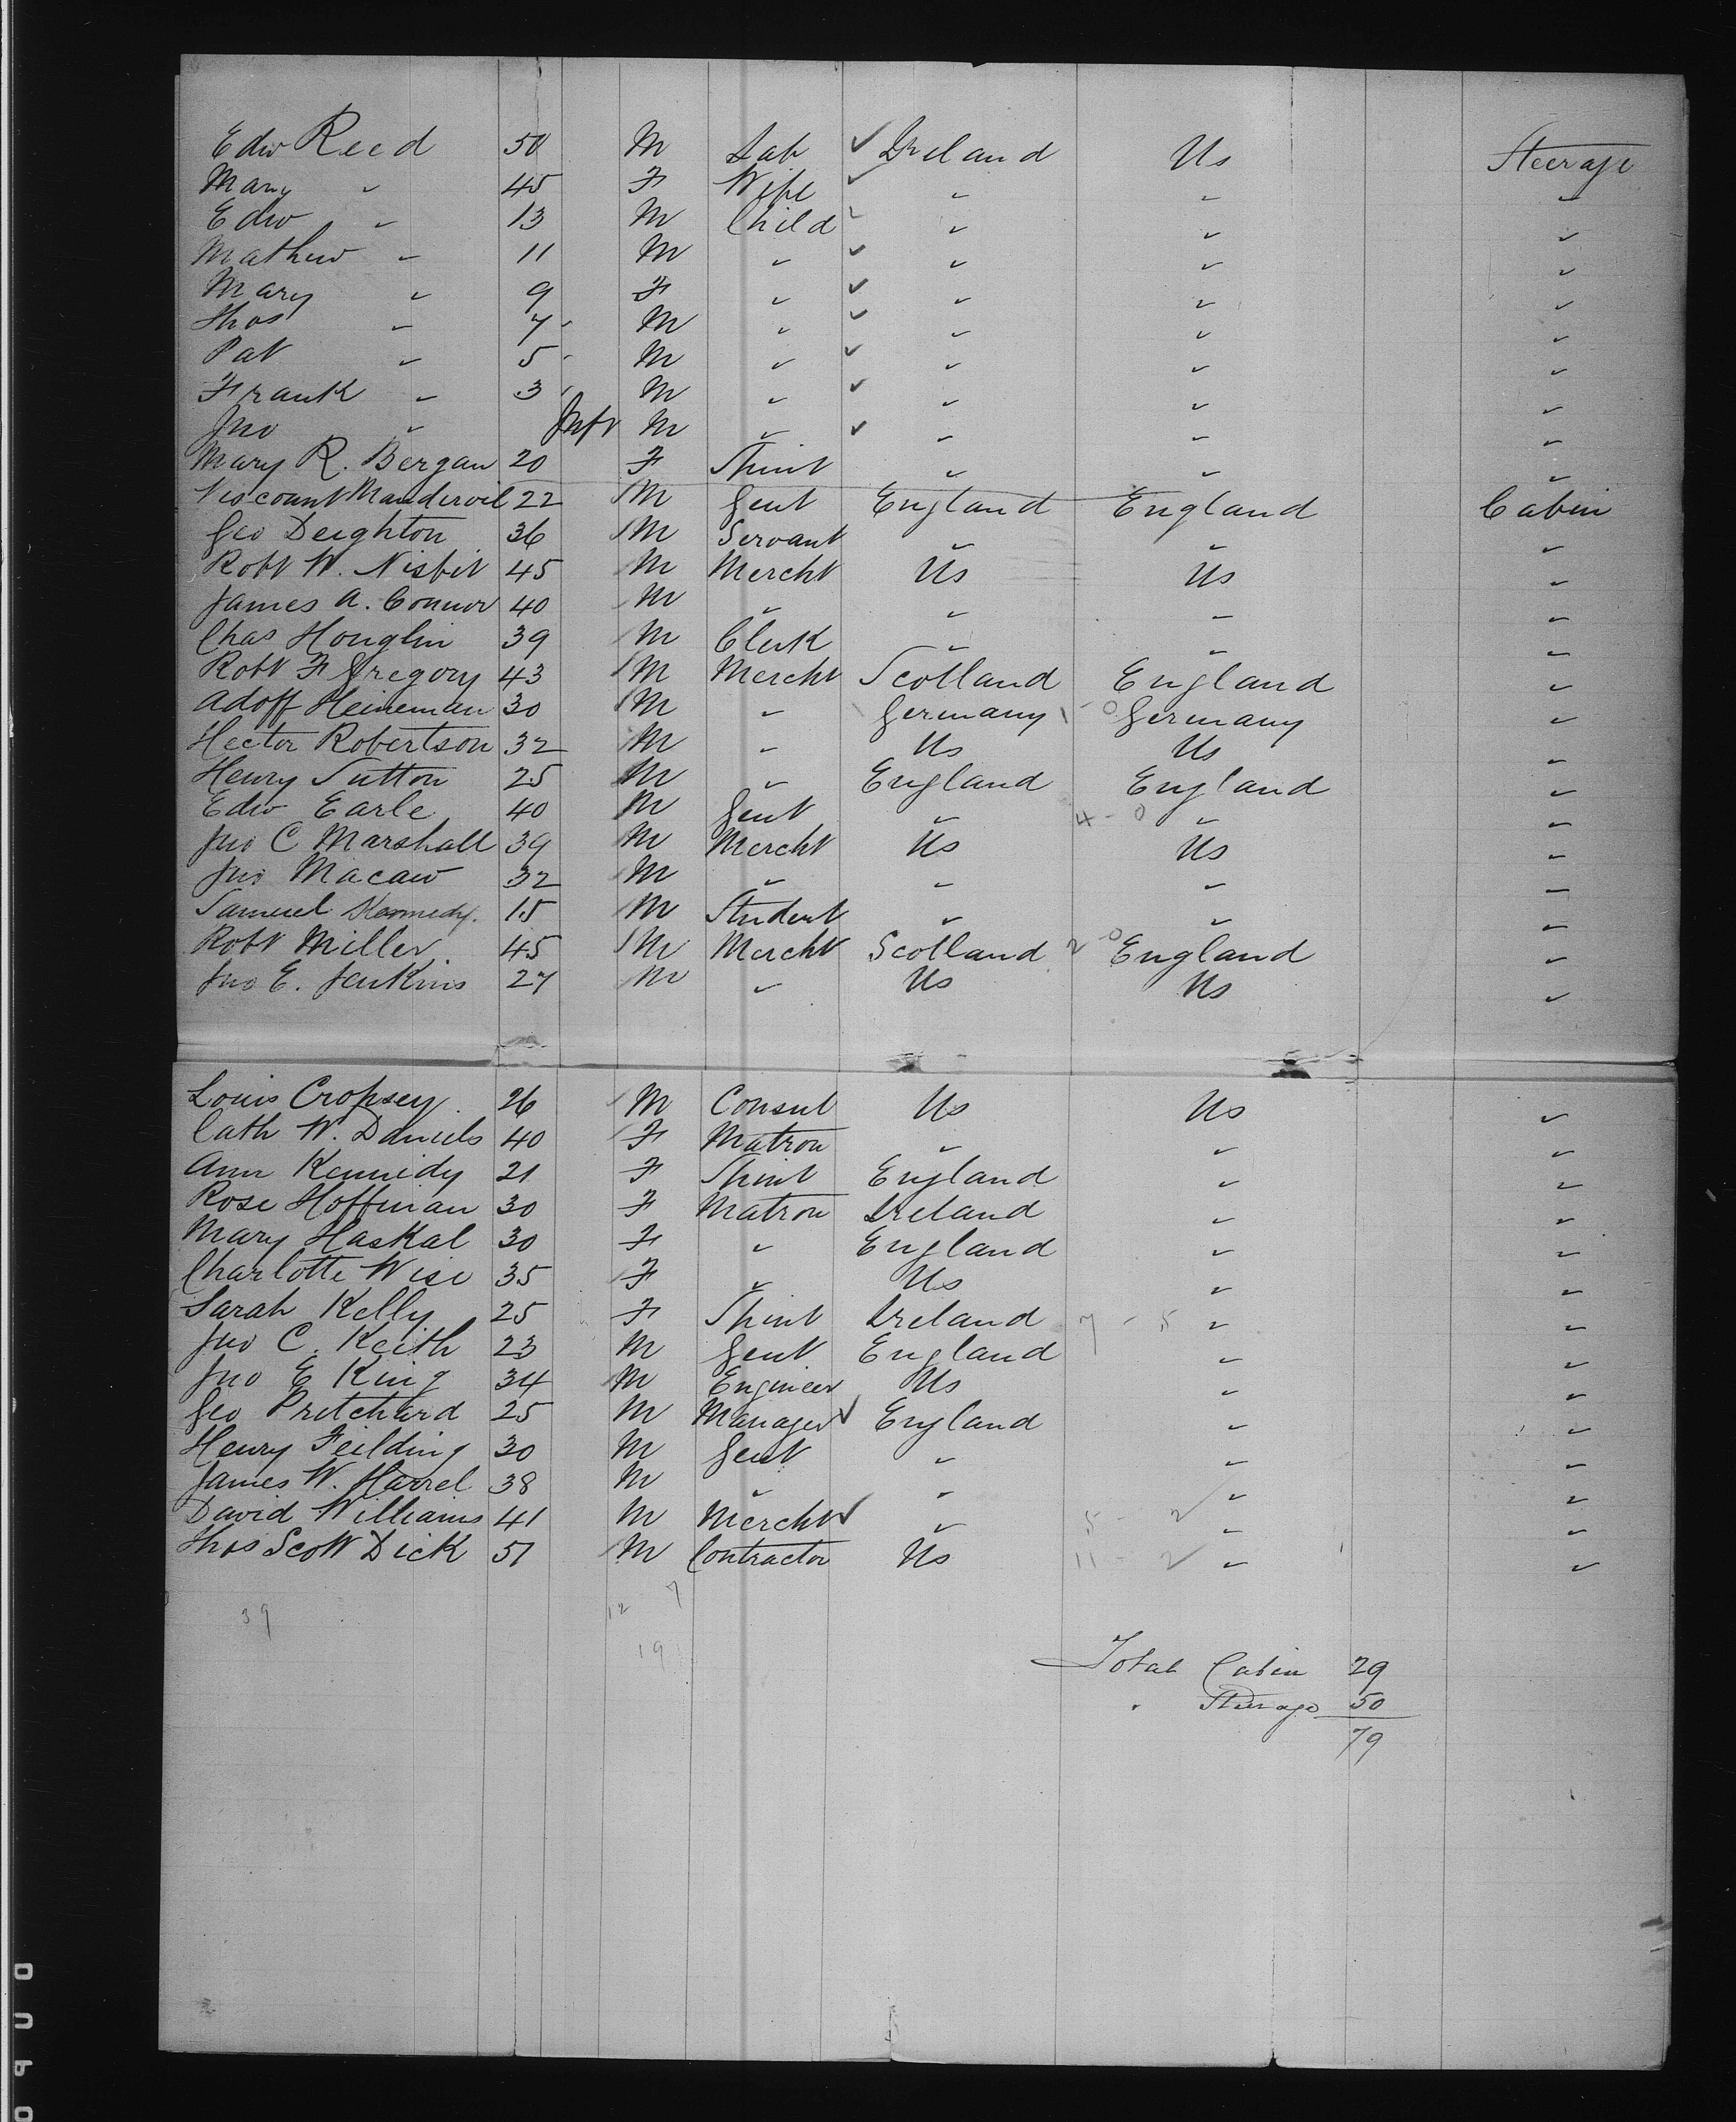 Edw Reed 50 M Lab ✓ Ireland Us Steerage
Mary " 45 F Wife ✓ " " "
Edw " 13 M Child ✓ " " "
Mathew " 11 M " ✓ " " "
Mary " 9 F " ✓ " " "
Thos " 7 M " ✓ " " "
Pat " 5 M " ✓ " " "
Frank " 3 M " ✓ " " "
Jno " Inft M " ✓ " " "
Mary R. Bergan 20 F Spint " " "
Viscount Mandervil 22 M Gent England England Cabin
Geo Deighton 36 M Servant " " "
Robt W. Nisbit 45 M Mercht Us Us "
James A. Connor 40 M " " " "
Chas Houglin 39 M Clerk " " "
Robt F Gregory 43 M Mercht Scotland England "
Adoff Heineman 30 M " Germany 1 - 0 Germany "
Hector Robertson 32 M " Us Us "
Henry Sutton 25 M " England England "
Edw Earle 40 M Gent " 4 - 0 " "
Jno C Marshall 39 M Mercht Us Us "
Jno Macaw 32 M " " " "
Samuel Kennedy. 15 M Student " " "
Robt Miller. 45 M Mercht Scotland 2 - 0 England "
Jno E. Jenkins 27 M " Us Us "
Louis Cropsey. 26 M Consul Us Us "
Cath W. Daniels 40 F Matron " " "
Ann Kennidy 21 F Spint England " "
Rose Hoffman 30 F Matron Ireland " "
Mary Haskal 30 F " England " "
Charlotte Wise 35 F " Us " "
Sarah Kelly 25 F Spint Ireland 7 - 5 " "
Jno C. Keith 23 M Gent England " "
Jno E King 34 M Engineer Us " "
Geo Pritchard 25 M Manager ✓ England " "
Henry Feilding 30 M Gent " " "
James W. Harrel 38 M " " " "
David Williams 41 M Mercht ✓ " 5 - 2 " "
Thos Scott Dick 51 M Contractor Us 11 - 2 " "
39 12 7
19
Total Cabin 29
" Steerage 50
79